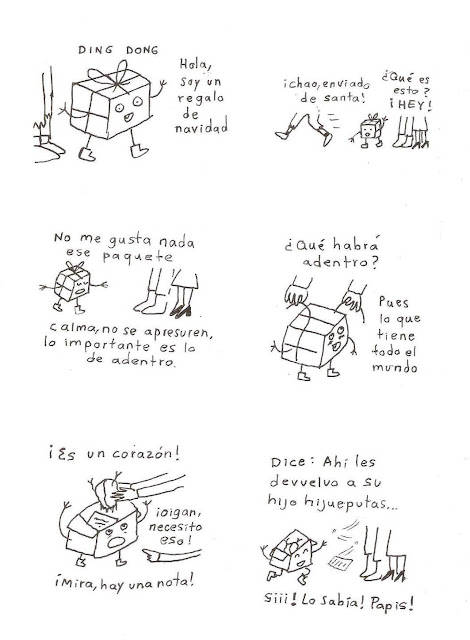 DING DONG
Hola,
soy un
regalo
de
navidad
¡chao, enviado
de santa!
¿Qué es
esto?
¡HEY!
No me gusta nada
ese paquete
calma, no se apresuren,
lo importante es lo
de adentro.
¿Qué habrá
adentro?
Pues
lo que
tiene
todo el
mundo
¡Es un corazón!
¡oigan,
necesito
eso!
¡Mira, hay una nota!
Dice: Ahí les
devuelvo a su
hijo hijueputas...
Siii! Lo Sabía! Papis!